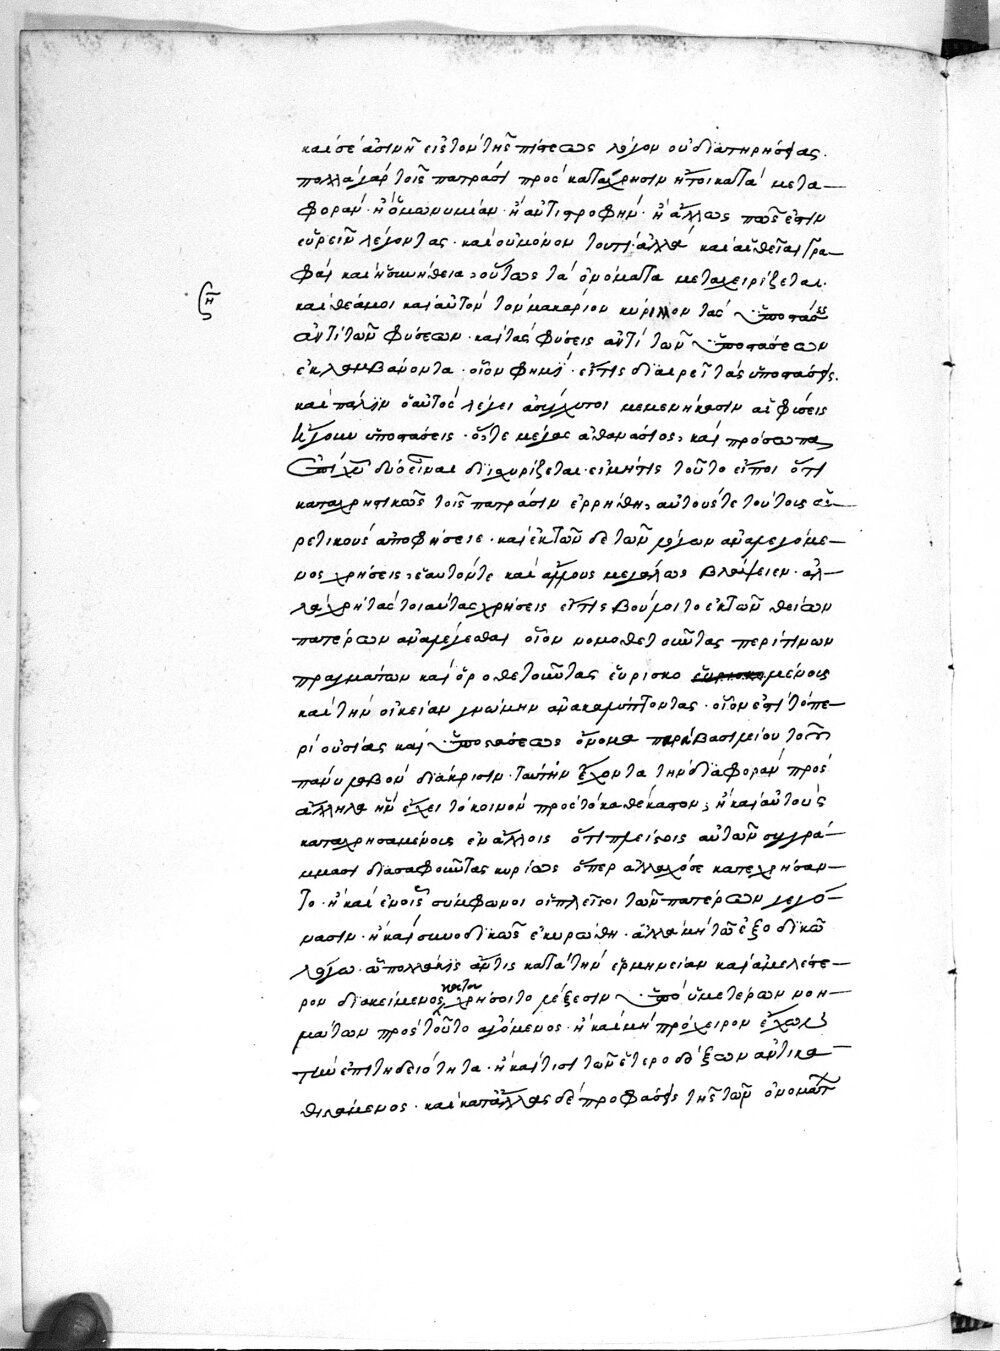 καὶ σὲ ἀσινῆ εἰς τὸν τῆς πίστεως λόγον οὐ διατηρήσας.
πολλὰ γὰρ τοῖς πατράσι πρὸς κατάχρησιν ἤτοι κατὰ μετα-
φορὰν· ἢ ὁμωνυμίαν· ἢ ἀντιστροφὴν· ἢ ἄλλως πῶς ἐστιν
εὑρεῖν λέγοντας· καὶ οὐ μόνον τοῦτο· ἀλλὰ καὶ αἱ θεῖαι γρα-
φαὶ καὶ ἡ συνήθεια, οὕτως τὰ ὀνόματα μεταχειρίζεται.
ζη
καὶ θέα μοι καὶ αὐτὸν τὸν μακάριον κύριλλον τὰς ὑποστάσεις
ἀντὶ τῶν φύσεων· καὶ τὰς φύσεις ἀντὶ τῶν ὑποστάσεων
ἐκλαμβάνοντα· οἷον φησὶ· εἴ τις διαιρεῖ τὰς ὑποστάσεις.
καὶ πάλιν ὁ αὐτὸς λέγει ἀσύγχυτοι μεμενήκασιν αἱ φύσεις
ἤγουν ὑποστάσεις· ὅτε μέγας ἀθανάσιος, καὶ πρόσωπα
ἐπὶ χῦ δύο εἶναι διϊσχυρίζεται· εἰ μήτις τοῦτο εἴποι ὅτι
καταχρηστικῶς τοῖς πατράσιν ἐρρήθη, αὐτούς τε τούτους αἱ-
ρετικοὺς ἀποφήσειε· καὶ ἐκ τῶν δε τῶν λόγων ἀναλεγόμε-
νος χρήσεις, ἑαυτόν τε καὶ ἄλλους μεγάλως βλάψειεν· ἀλ-
λὰ χρὴ τὰς τοιαύτας χρήσεις εἴ τις βούλοιτο ἐκ τῶν θείων
πατέρων ἀναλέγεσθαι οἷον νομοθετοῦντας περί τινων
πραγμάτων καὶ ὁροθετοῦντας εὑρισκομένους
καὶ τὴν οἰκείαν γνώμην ἀνακαλύπτοντας· οἷον ἐπὶ τὸ πε-
ρὶ οὐσίας καὶ ὑποστάσεως ὄνομα παρὰ βασιλείου τοῦ
πάνυ λαβὸν διάκρισιν· ταύτην ἔχοντα τὴν διαφορὰν πρὸς
ἄλληλα ἣν ἔχει τὸ κοινὸν πρὸς τὸ καθέκαστον, ἢ καὶ αὐτοὺς
καταχρησαμένους ἐν ἄλλοις ὅτι πλείοσι αὐτῶν συγγρά-
μμασι διασαφοῦντας κυρίως ὅπερ ἀλλαχόσε κατεχρήσαν-
το· ἢ καὶ ἐν οἷς σύμφωνοι οἱ πλεῖστοι τῶν πατέρων γεγό-
νασιν· ἢ καὶ συνοδικῶς ἐκυρώθη· ἀλλὰ μὴ τῷ ἐξοδικῷ
λόγω· ᾧ πολλάκις ἄν τις κατὰ τὴν ἑρμηνείαν καὶ ἀμελέστε-
ρον διακείμενος χρήσοιτο λέξεσιν ὑπὸ ὑμετέρων νοη-
μάτων πρὸς τοῦτο ἀγόμενος· ἢ καὶ μὴ πρόχειρον ἔχων
τὴν ἐπιτηδειότητα· ἢ καί τισι τῶν ἑτεροδόξων ἀντικα-
θιστάμενος· καὶ κατ' ἄλλας δὲ προφάσεις τῆς τῶν ὀνομάτ